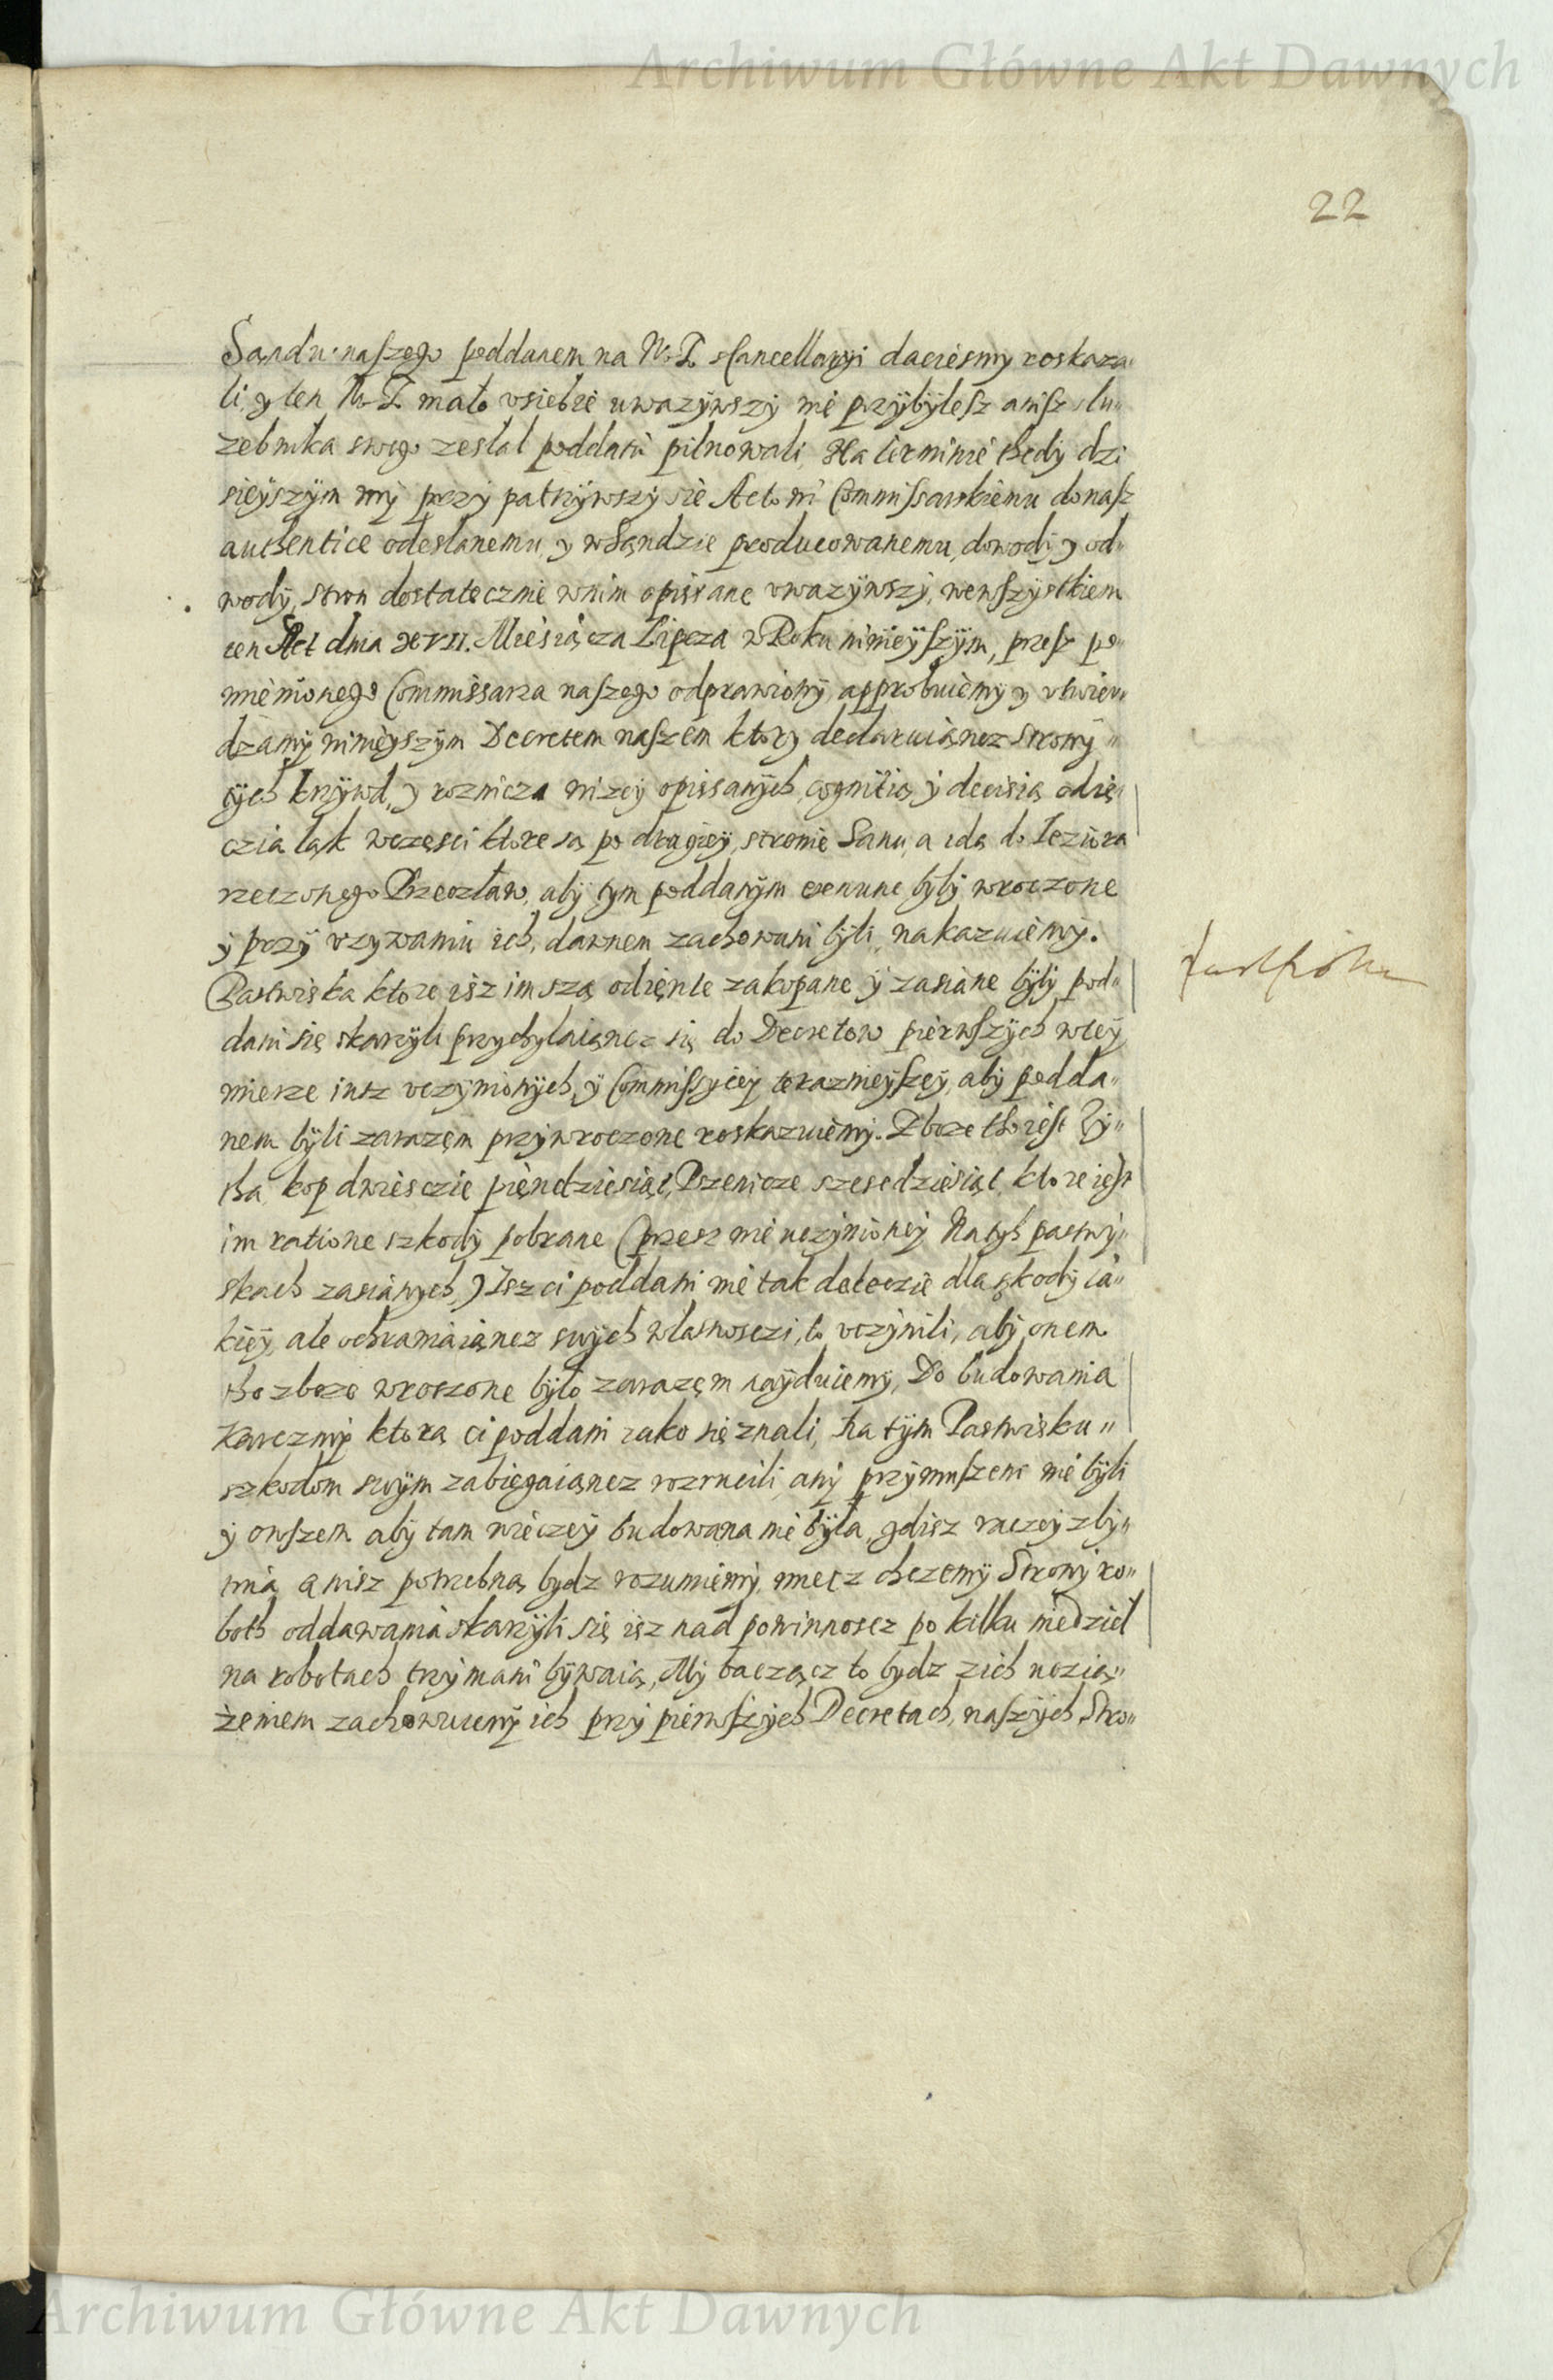 Archiwum Główne Akt Dawnych
22
Sandu naszego poddanem na W. T. z Cancellaryi daciesmy roskaza„
li, y ten W. T. mało v siebie uwazywszy nie przybyłesz anisz słu„
zebnika swego zesłał poddani pilnowali, Na terminie thedy dzi
sieyszym my przypatrzywszy sie Actowi Commissarskiemu do nasz
authentice odesłanemu, y w Sąndzie producowanemu, dowody y od„
wody stron dostatecznie w nim opisane vwazywszy, we wszystkiem
ten Act dnia XVII. Miesiącza Lipcza w Roku ninieyszym, przesz po„
mnienionego Commissarza naszego odprawiony, approbuiemy y vtwier„
dzamy ninieyszym Decretem naszem ktory declaruiąncz strony„
tych krzywd, y roznicza nizey opissanych, cognitią y decisią odię„
czia łąk w częsci ktore są po drugiey stronie Sanu, a idą do Ieziora
rzeczonego Przecław, aby tym poddanym wroczone
y przy vzywaniu ich, dawnem zachowani byli, nakazuiemy.
Pastwiska ktore isz im są odięnte zakopane y zasiane były pod„
dani się skarzyli przychylaiąncz się do Decretow pierwszych w tey
mierze iusz vczynionych, y Commissyiey teraznieyszey, aby podda„
nem byli zarazem przywroczone roskazuiemy. Zboze tho iest Zy„
tha kop dwiesczie pięndziesiąt, Pszenicze szescdziesiąt, ktore iest
im ratione szkody pobrane (przesz nie uczynioney na tych pastwy„
skach zasianych,) Isz ci poddani nie tak dla skody ia„
kiey, ale ochraniaiąncz swych własnosczi, to vczynili, aby onem
tho zboze wroczone było zarazem nayduiemy, Do budowania
Karczmy ktorą ci poddani iako się znali, na tym Pastwisku„
szkodom swym zabiegaiąncz rozrucili, any przymuszeni nie byli
y owszem aby tam wieczey budowana nie była, gdisz raczey zby„
tnią, anisz potrzebną bydz rozumiemy, miecz chczemy Strony ro„
both oddawania skarzyli się isz nad powinnoscz po kilku niedziel
na robotach trzymani bywaią, My baczącz to bydz z ich uczią„
żeniem zachowuiemy ich przy pierwszych Decretach, naszych Stro„
Archiwum Główne Akt Dawnych